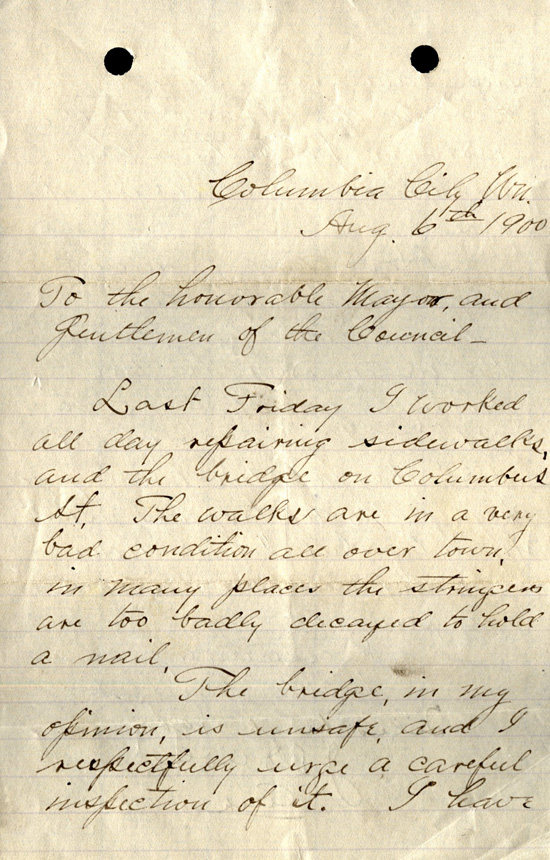 Columbia City, Wn.
Aug. 6th 1900
To the honorable Mayor, and
Gentlemen of the Council—
Last Friday I worked
all day repairing sidewalks,
and the bridge on Columbus
St. The walks are in a very
bad condition all over town,
in many places the stringers
are too badly decayed to hold
a nail.
The bridge, in my
opinion, is unsafe, and I
respectfully urge a careful
inspection of it. I have